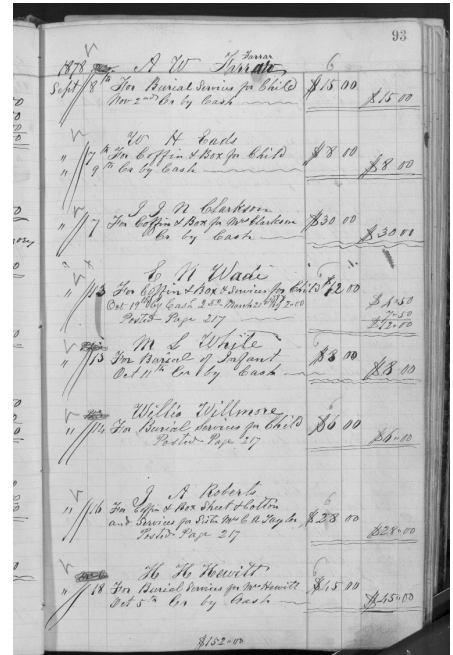 93
1878 A W Farrar 6
Sept 8th For Burial Services for Child $15 00
Nov 2nd Cr by Cash $15 00
W H Eads
" 7th For Coffin & Box for Child $8 00
" 9th Cr by Cash $8 00
J J N Clarkson
" 7 For Coffin & Box for Mrs Clarkson $30 00
Cr by Cash $30 00
E N Wadi 6
" 13 For Coffin & Box & Services for Child $12 00
Oct 19th by Cash March 2.00 $4.50
Posted Page 217 7.50
$12.00
M L White 6
" 13 For Burial of Infant $8 00
Oct 11th Cr by Cash $8 00
Willis Willmore 6
" 14 For Burial Services for Child $6 00
Posted Page 217 $6.00
J A Roberts 6
" 16 For Coffin & Box Sheet & Cotton
and Services for Sister Mrs E A Taylor $28 00
Posted Page 217 $28.00
H H Hewitt 6
" 18 For Burial Services for Mrs Hewitt $45 00
Oct 5th Cr by Cash $45.00
$152.00